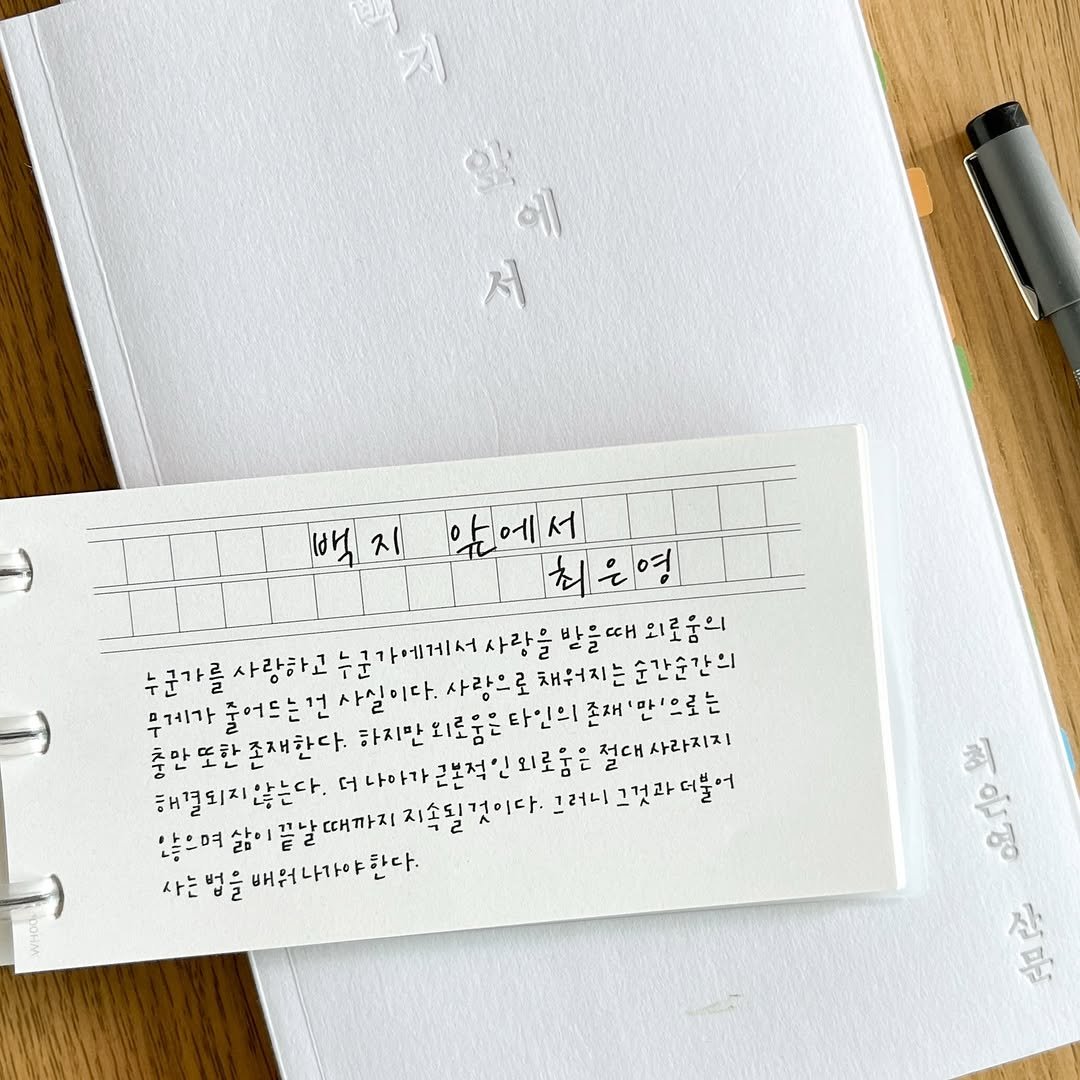 백지
앞에
서
백지 앞에서
최은영
누군가를 사랑하고 누군가에게서 사랑을 받을때 외로움의
무게가 줄어드는건 사실이다. 사랑으로 채워지는 순간순간의
충만 또한 존재한다. 하지만 외로움은 타인의 존재 '만'으로는
해결되지 않는다. 더 나아가 근본적인 외로움은 절대 사라지지
않으며 삶이 끝날 때까지 지속될 것이다. 그러니 그것과 더불어
사는 법을 배워 나가야한다.
최은영
산문